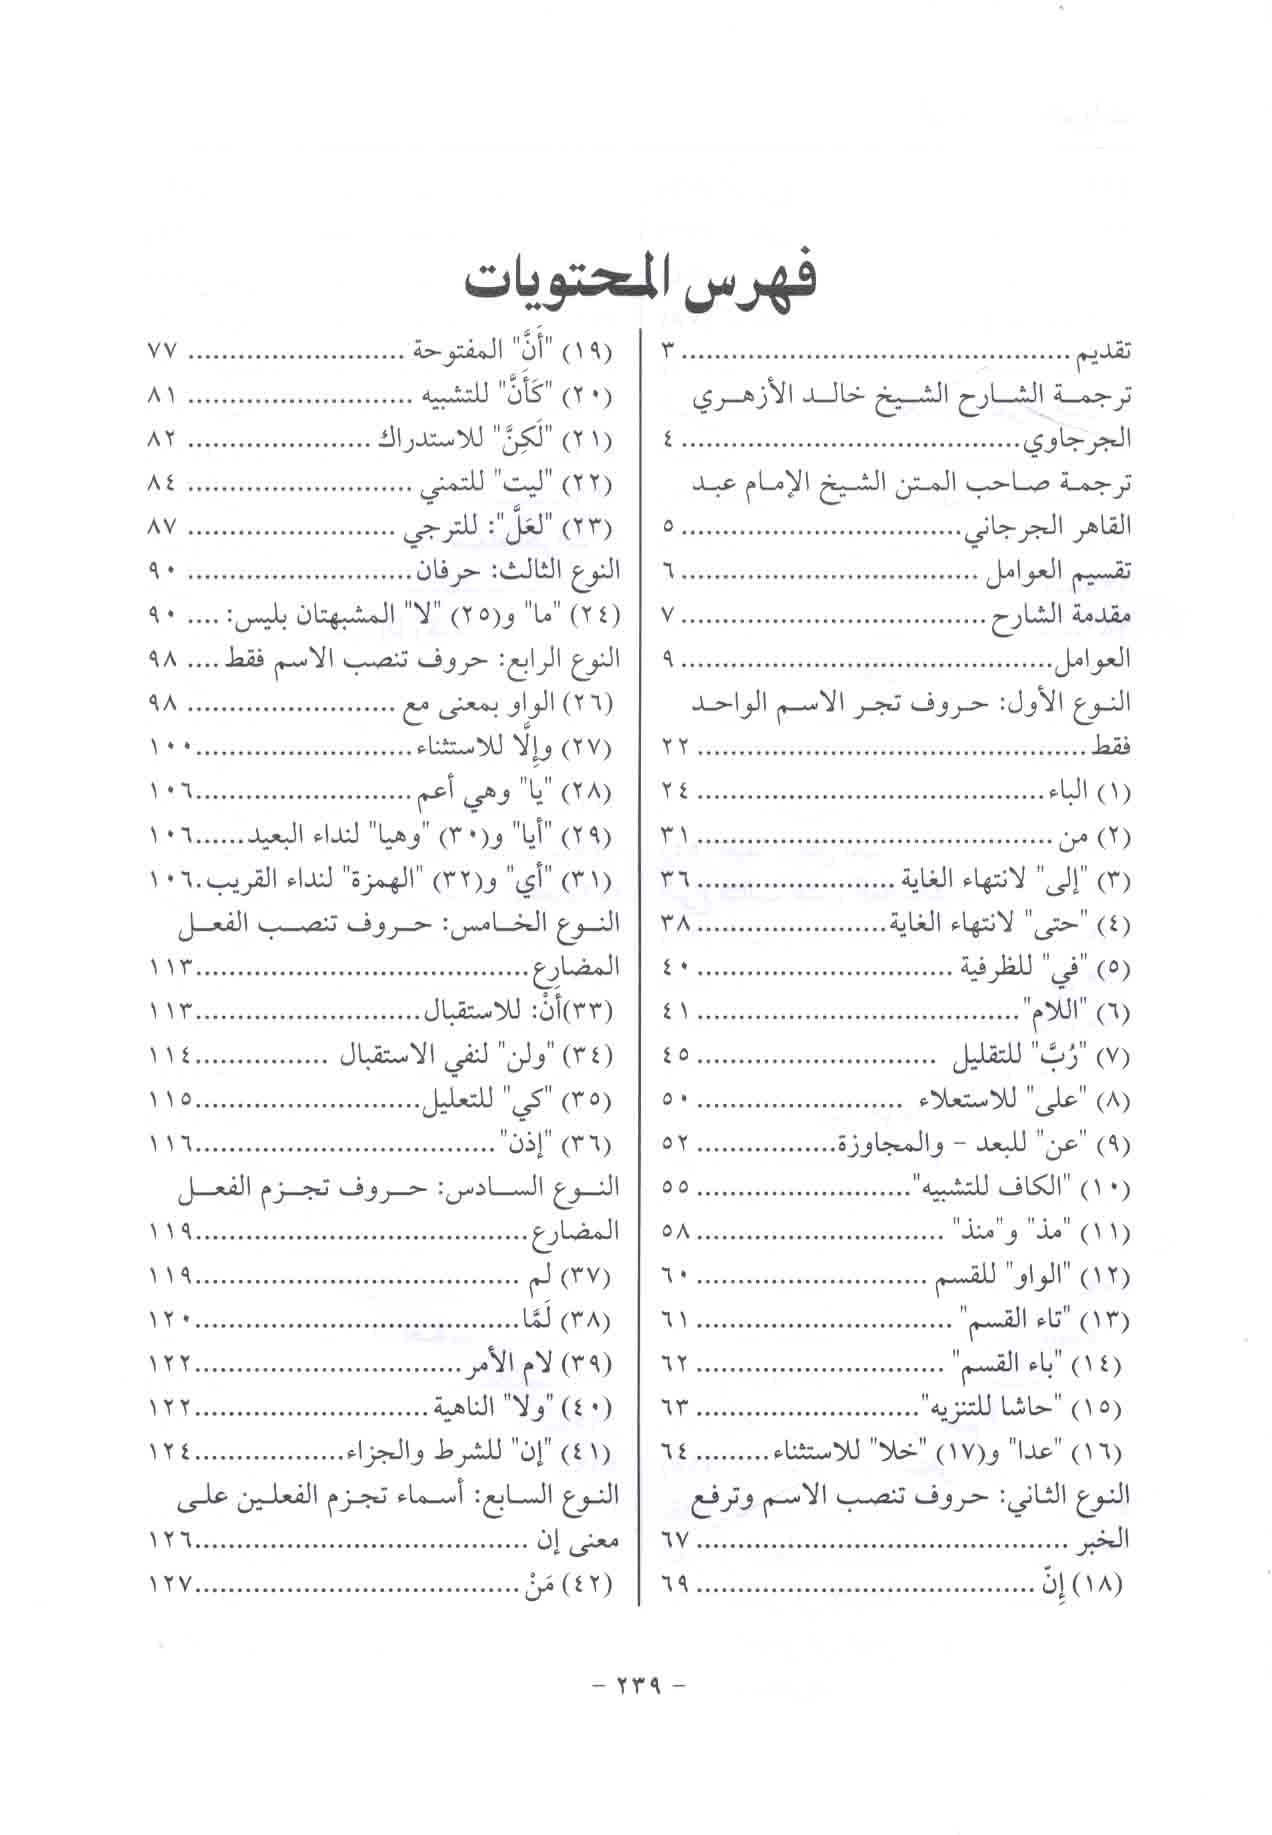 فهرس المحتويات
تقديم ............................................... ٣
ترجمة الشارح الشيخ خالد الأزهري
الجرجاوي ......................................... ٤
ترجمة صاحب المتن الشيخ الإمام عبد
القاهر الجرجاني .................................. ٥
تقسيم العوامل .................................... ٦
مقدمة الشارح ..................................... ٧
العوامل ............................................. ٩
النوع الأول: حروف تجر الاسم الواحد
فقط ............................................... ٢٢
(١) الباء .......................................... ٢٤
(٢) من ........................................... ٣١
(٣) "إلى" لانتهاء الغاية ........................ ٣٦
(٤) "حتى" لانتهاء الغاية ....................... ٣٨
(٥) "في" للظرفية ............................... ٤٠
(٦) "اللام" ....................................... ٤١
(٧) "رُبَّ" للتقليل ............................. ٤٥
(٨) "على" للاستعلاء ......................... ٥٠
(٩) "عن" للبعد – والمجاوزة ................. ٥٢
(١٠) "الكاف للتشبيه" .......................... ٥٥
(١١) "مذ" و"منذ" .............................. ٥٨
(١٢) "الواو" للقسم ............................ ٦٠
(١٣) "تاء القسم" ............................... ٦١
(١٤) "باء القسم" .............................. ٦٢
(١٥) "حاشا للتنزيه" ........................... ٦٣
(١٦) "عدا" و(١٧) "خلا" للاستثناء ......... ٦٤
النوع الثاني: حروف تنصب الاسم وترفع
الخبر ............................................. ٦٧
(١٨) إنّ ......................................... ٦٩
(١٩) "أَنَّ" المفتوحة .......................... ٧٧
(٢٠) "كَأَنَّ" للتشبيه ........................ ٨١
(٢١) "لَكِنَّ" للاستدراك ...................... ٨٢
(٢٢) "ليت" للتمني ........................... ٨٤
(٢٣) "لعَلَّ": للترجي ......................... ٨٧
النوع الثالث: حرفان ........................... ٩٠
(٢٤) "ما" و(٢٥) "لا" المشبهتان بليس: .... ٩٠
النوع الرابع: حروف تنصب الاسم فقط .... ٩٨
(٢٦) الواو بمعنى مع ......................... ٩٨
(٢٧) وإلَّا للاستثناء .......................... ١٠٠
(٢٨) "يا" وهي أعم .......................... ١٠٦
(٢٩) "أيا" و(٣٠) "وهيا" لنداء البعيد ...... ١٠٦
(٣١) "أي" و(٣٢) "الهمزة" لنداء القريب . ١٠٦
النوع الخامس: حروف تنصب الفعل
المضارع ........................................ ١١٣
(٣٣)أَنْ: للاستقبال ........................... ١١٣
(٣٤) "ولن" لنفي الاستقبال ................ ١١٤
(٣٥) "كي" للتعليل ........................... ١١٥
(٣٦) "إذن" .................................... ١١٦
النوع السادس: حروف تجزم الفعل
المضارع ........................................ ١١٩
(٣٧) لم ........................................ ١١٩
(٣٨) لَمَّا ....................................... ١٢٠
(٣٩) لام الأمر ................................ ١٢٢
(٤٠) "ولا" الناهية ............................ ١٢٢
(٤١) "إن" للشرط والجزاء .................. ١٢٤
النوع السابع: أسماء تجزم الفعلين على
معنى إن ........................................ ١٢٦
(٤٢) مَنْ ....................................... ١٢٧
– ٢٣٩ –